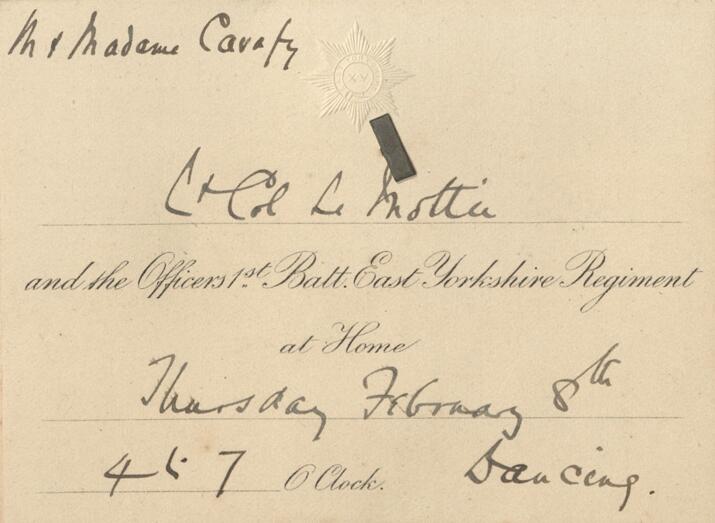 Mr & Madame Cavafy
XV
Lt Col Le Mottée
and the Officers 1st Batt. East Yorkshire Regiment
at Home
Thursday February 8th
4 to 7 O'Clock. Dancing.